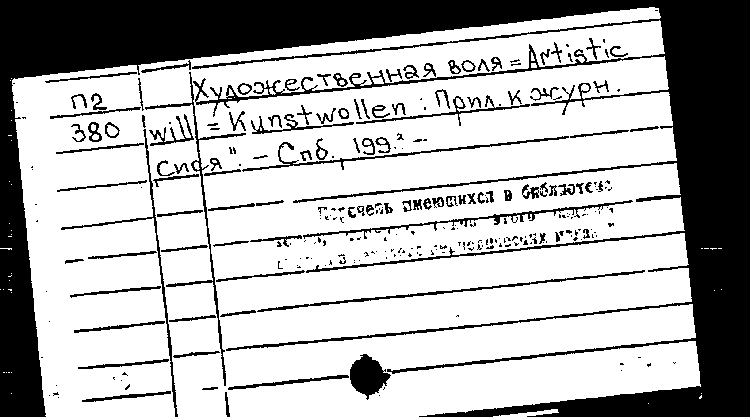 П2
380
Художественная воля = Artistic
will = Kunstwollen : Прил. к журн.
"Силя". – Спб., 199.² –
Перечень имеющихся в библиотеке
этого
периодических